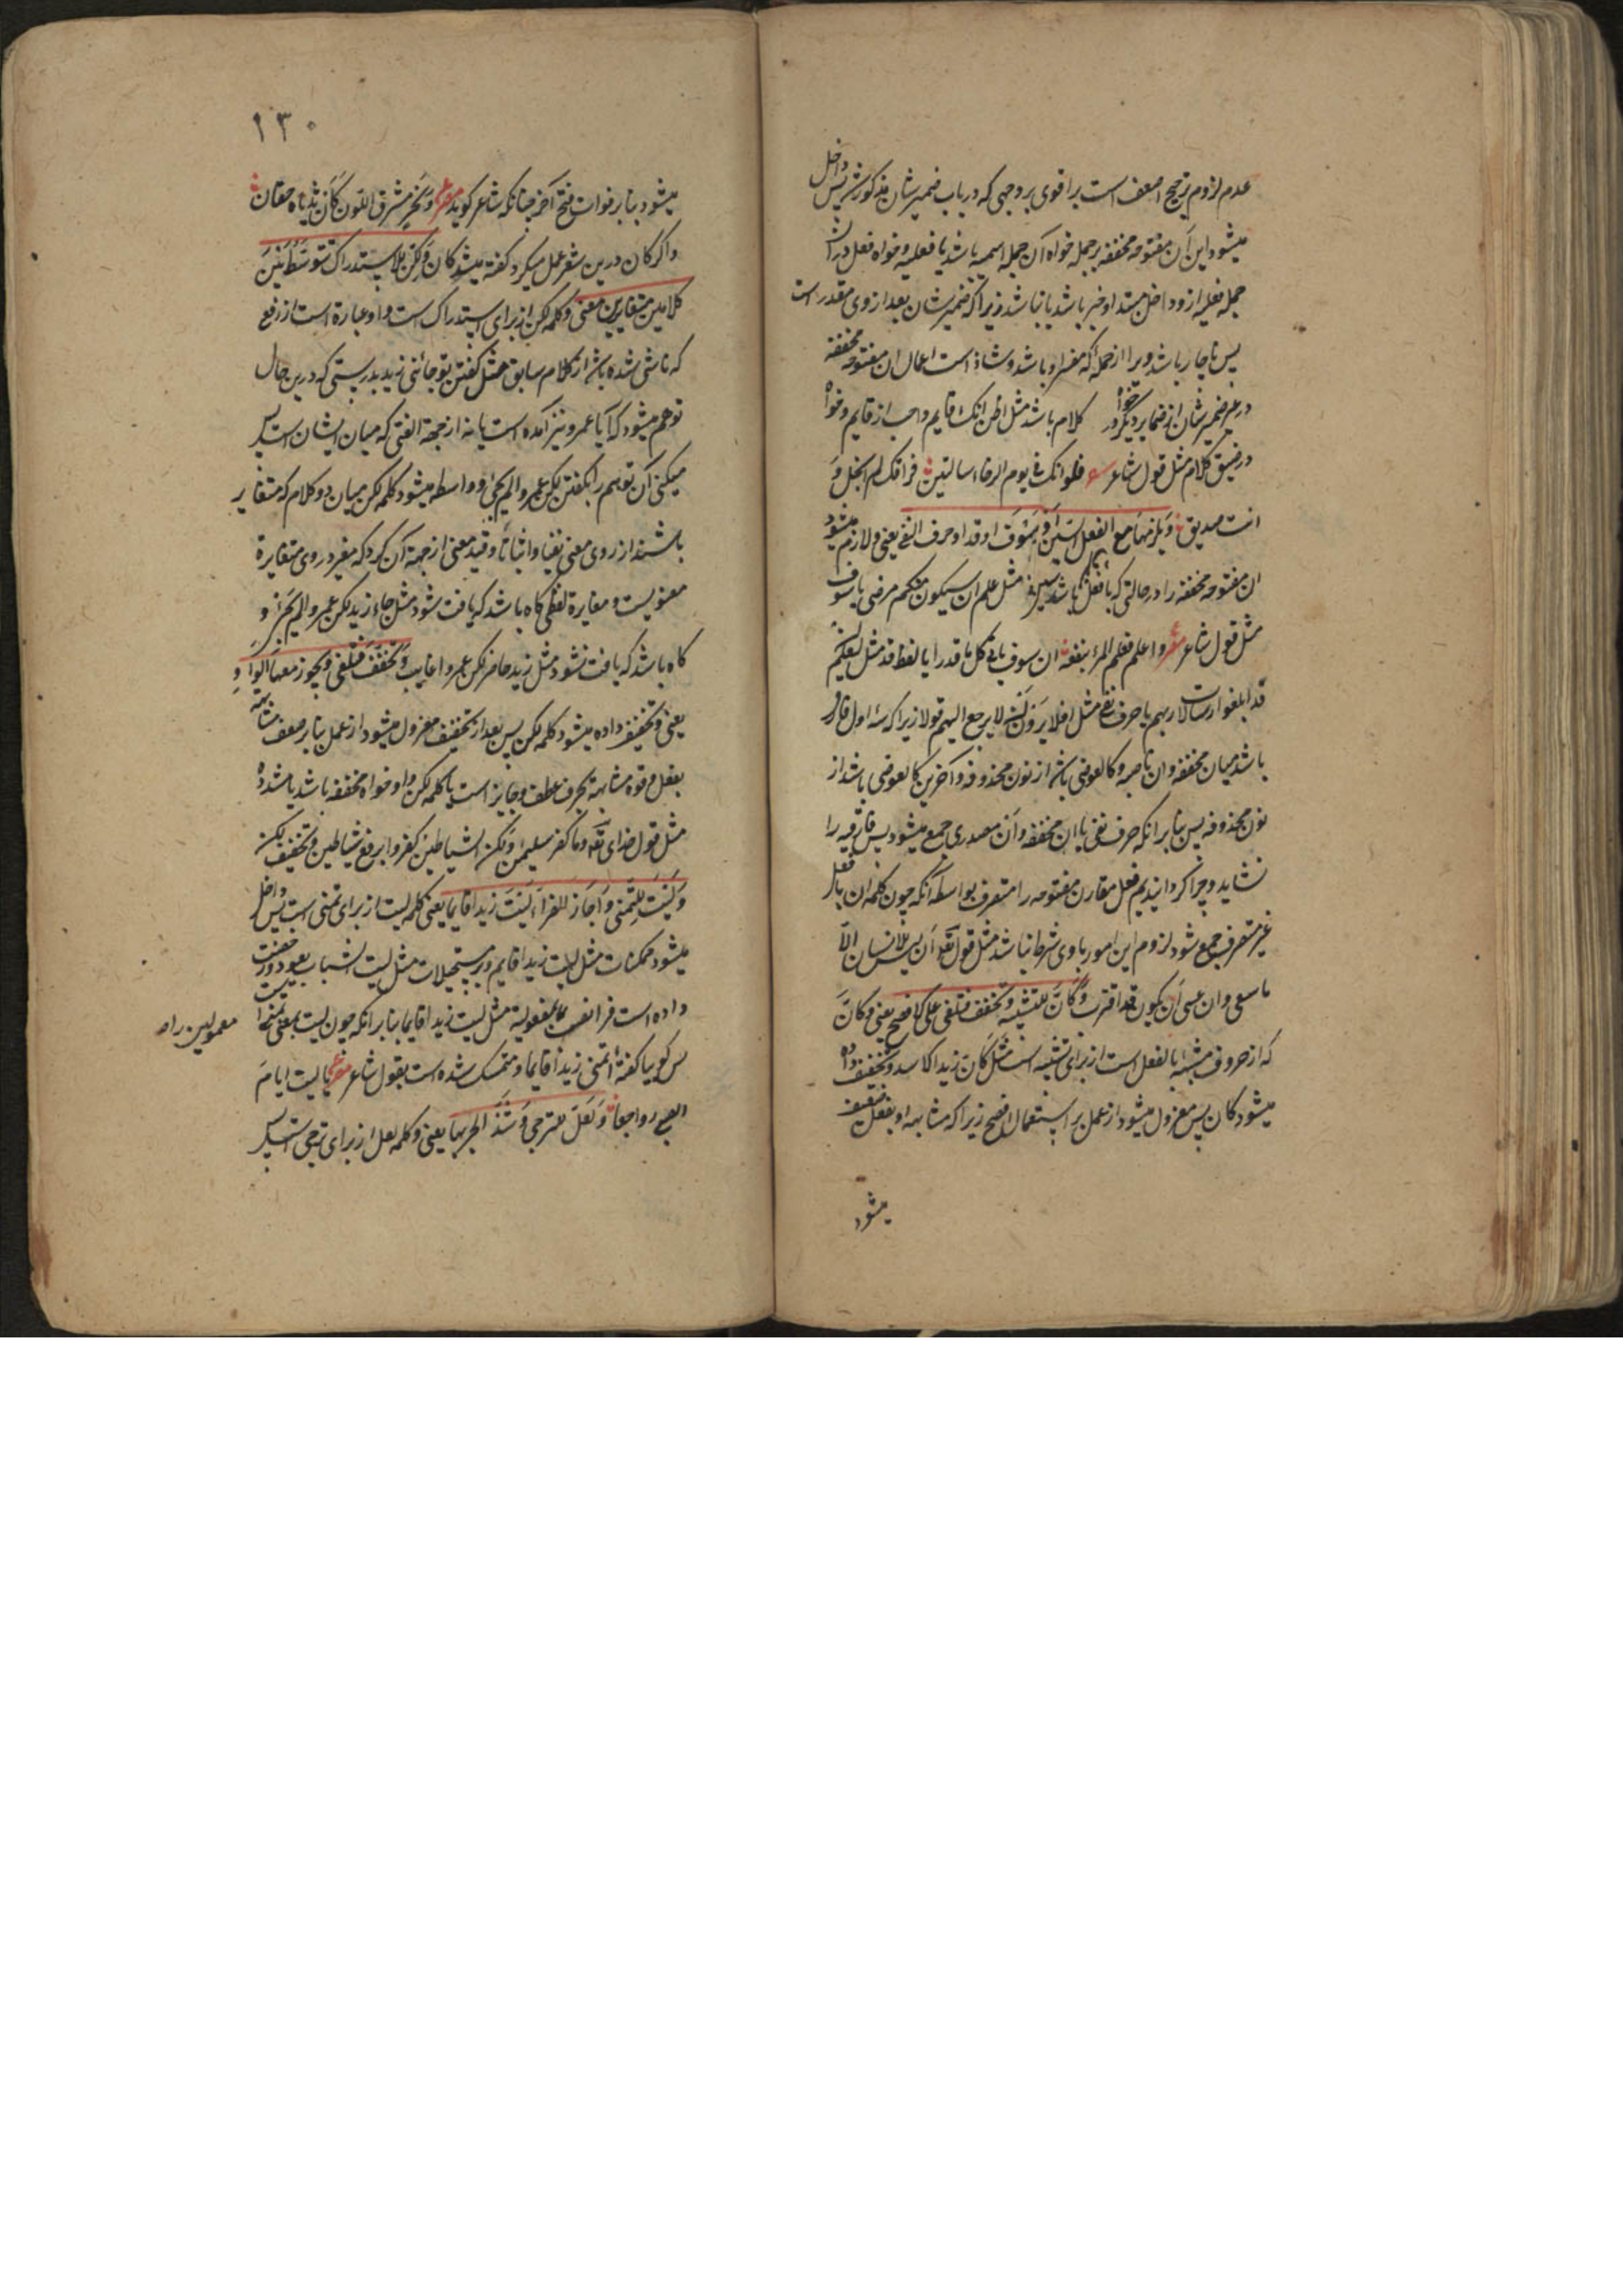 عدم لزوم ترجیح اضعف است بر اقوی بر وجهی که در باب ضمیر شان مذکور شد پس داخل
میشود این اَن مفتوحه مخففه بر جمله خواه آن جمله اسمیه باشد یا فعلیه و خواه فعل در آن
جمله فعلیه از دواخل مبتدا و خبر باشد یا نباشد زیرا که ضمیر شان بعد از وی مقدر است
پس ناچار باشد ویرا از جمله که مفسر او باشد و شاذ است اعمال ان مفتوحه مخففه
در غیر ضمیر شان از ضمایر دیگر خواه در کلام باشد مثل اظن انک قایم و احب از قایم و خواه
در ضیق کلام مثل قول شاعر شعر فلو انک فی یوم الرخاء سالتنی فراقک لم ابخل و
انت صدیق و یلزمها مع الفعل السین او سوف او قد او حرف النفی یعنی و لازم میشود
ان مفتوحه مخففه را در حالتی که با فعل باشد سین مثل علم ان سیکون منکم مرضی یا سوف
مثل قول شاعر شعر و اعلم فعلم المرء ینفعه ان سوف یاتی کل ما قدرا یا لفظ قد مثل لیعلم
قد ابلغوا رسالات ربهم یا حرف نفی مثل افلا یرون ان لا یرجع الیهم قولا زیرا که سه اول فارق
باشد میان مخففه و ان ناصبه و کالعوض باشد از نون محذوفه و آخرین کالعوض باشد از
نون محذوفه پس بنا بر آنکه حرف نفی با ان مخففه و اَن مصدری جمع میشود پس فارقیه را
نشاید و چرا گردانیدیم فعل مقارن مفتوحه را متصرف بواسطه آنکه چون کلمه ان با فعل
غیر متصرف جمع شود لزوم این امور با وی شرط نباشد مثل قوله تعالی و اَن لیس للانسان الّا
ما سعی و ان عسی اَن یکون قد اقترب و کَانَّ للتشبیه و تخفف فتلغی علی الافصح یعنی و کَانَّ
که از حروف مشبه بالفعل است از برای تشبیه است مثل کَانّ زیدا الاسد و تخفیف داده
میشود کان پس معزول میشود از عمل بر استعمال افصح زیرا که مشابهه او بفعل ضعیف
میشود
۱۳۰
میشود بنا بر فوات فتح آخر چنانکه شاعر گوید مصرع و نحر مشرق اللون کَاَن ثدیاه حقان
و اگر کان درین شعر عمل میکرد گفته میشد کان و لکنّ للاستدراک تتوسط بین
کلامین متغایرین معنی و کلمه لکن از برای استدراک است و او عبارة است از رفع
که ناشی شده باشد از کلام سابق مثل گفتن تو جائنی زید بدرستی که درین حال
توهم میشود که آیا عمرو نیز آمده است یا نه از جهة الفتی که میان ایشان است پس
میکنی آن توهم را بگفتن لکن عمروا لم یجئ و واسطه میشود کلمه لکن میان دو کلام که متغایر
باشند از روی معنی نفیا و اثباتا و قید معنی از جهة آن کرد که مفید روی متغایرة
معنویست و مغایرة لفظی گاه باشد که یافت شود مثل جاء زید لکن عمروا لم یجئ و
گاه باشد که یافت نشود مثل زید حاضر لکن عمروا غایب و تخفف فتلغی و یجوز معها الواو
یعنی و تخفیف داده میشود کلمه لکن پس بعد از تخفیف معزول میشود از عمل بنا بر ضعف مشابهة
بفعل و قوة مشابهة بحرف عطف و جایز است با کلمه لکن واو خواه مخففه باشد یا مشدده
مثل قول خدای تعالی و ما کفر سلیمن و لکن الشیاطین کفروا برفع شیاطین و تخفیف لکن
و لیت للتمنی و اجاز الفراء لیت زیدا قایما یعنی کلمه لیت از برای تمنی است پس داخل
میشود ممکنات مثل لیت زیدا قایم و بر مستحیلات مثل لیت الشباب یعود و رخصت
داده است فرا نصب بمفعولیة مثل لیت زیدا قایما بنا بر آنکه چون لیت بمعنی تمنی است
معمولین را
پس گوییا گفتهٔ اتمنی زیدا قایما و متمسک شده است بقول شاعر مصرع یا لیت ایام
الصبی رواجعا و لعل للترجی و شذ الجر بها یعنی و کلمه لعل از برای ترجی است پس